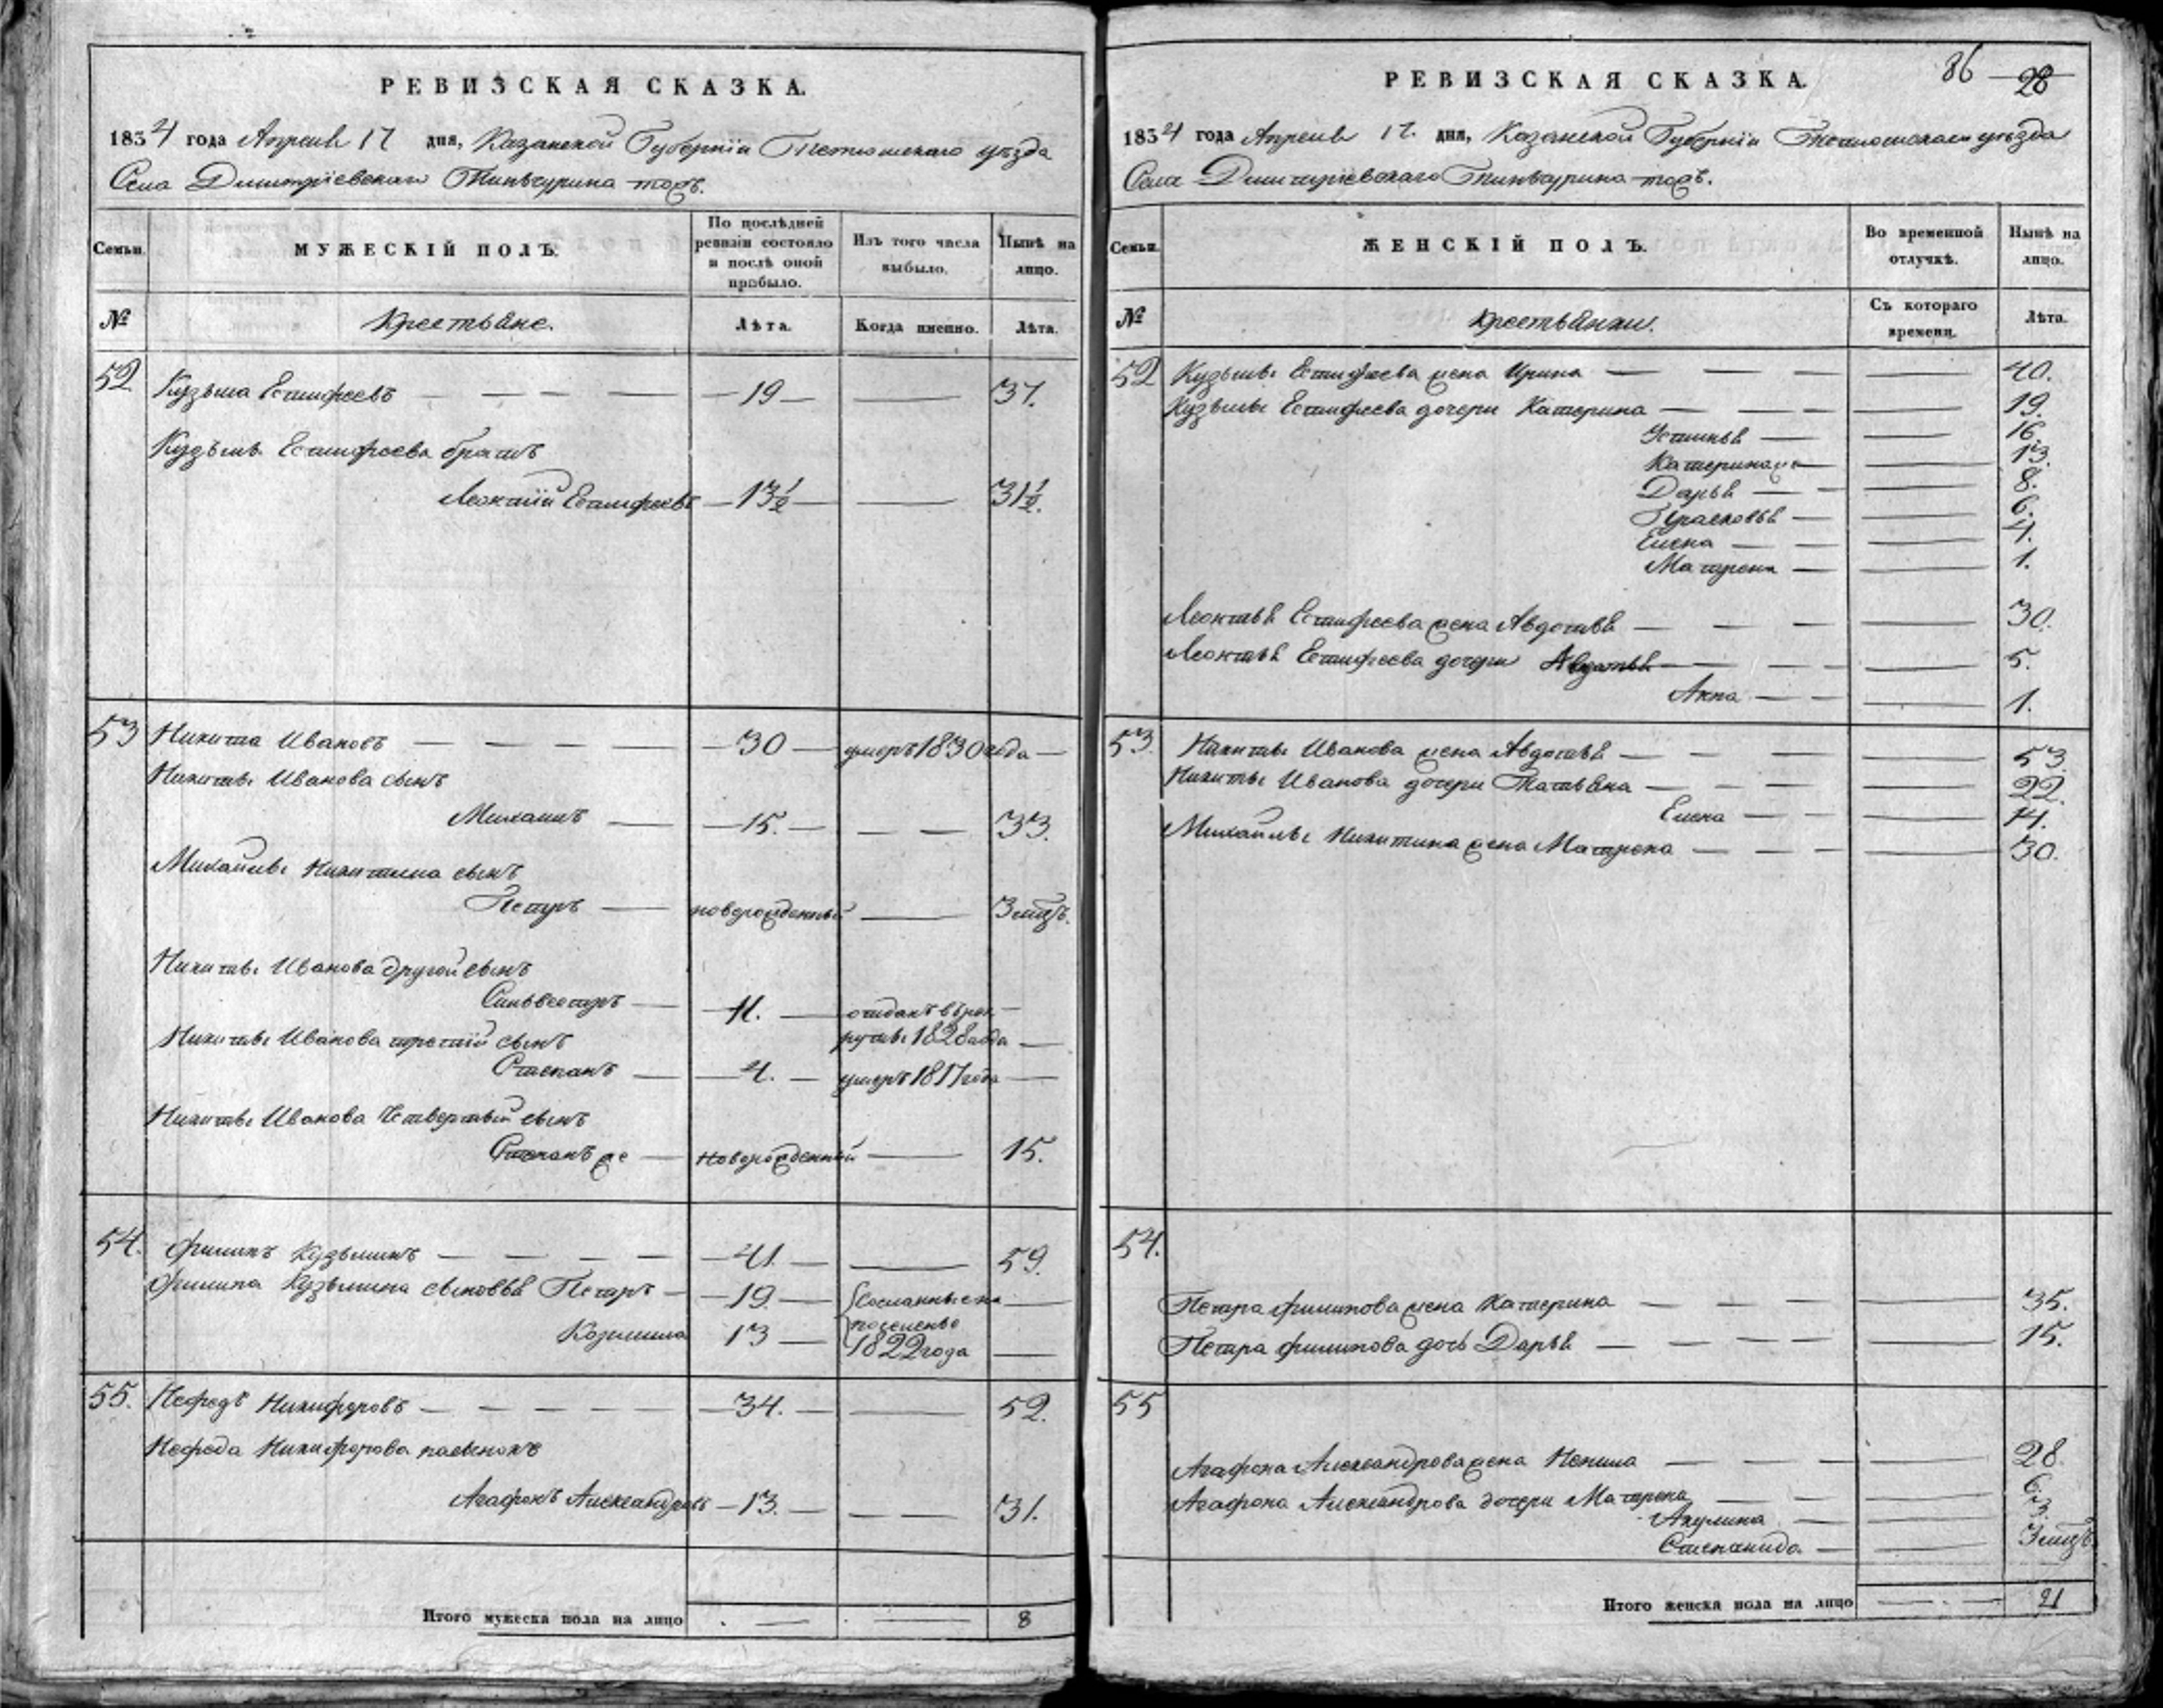 РЕВИЗСКАЯ СКАЗКА.
1834 года Апреля 17 дня, Казанской Губернїи Тетюшскаго уѣзда
Села Дмитрїевскаго Тинчурина тожъ.
Семьи.
МУЖЕСКІЙ ПОЛЪ.
По послѣдней ревизіи состояло и послѣ оной прибыло.
Изъ того числа выбыло.
Нынѣ на лицо.
№
Крестьяне.
Лѣта.
Когда именно.
Лѣта.
52 Кузьма Естифеевъ — 19 — 37.
Кузьмы Естифеева братъ
Леонтїй Естифеевъ — 13½ — 31½.
53 Никита Ивановъ — 30 — умеръ 1830 года —
Никиты Иванова сынъ
Михаилъ — 15. — 33.
Михайлы Никитина сынъ
Петръ — новорожденный — 3 мцъ.
Никиты Иванова другой сынъ
Сильвестръ — 11. — отданъ въ рек
Никиты Иванова третїй сынъ
руты 1828 года —
Степанъ — 4. — умеръ 1817 года —
Никиты Иванова Четвертый сынъ
Степанъ же — новорожденный — 15.
54. Филипъ Кузьминъ — 41. — 59.
Филипа Кузьмина сыновья Петръ — 19. — Сосланные на —
поселенье
13 — 1822 года —
55. Нефедъ Никифоровъ — 34. — 52.
Нефеда Никифорова пасынокъ
Агафонъ Александровъ — 13. — 31.
Итого мужеска пола на лицо — — 8
86 28
РЕВИЗСКАЯ СКАЗКА.
1834 года Апреля 17. дня, Казанской Губернїи Тетюшскаго уѣзда
Села Дмитрїевскаго Тинчурина тожъ.
Семьи.
ЖЕНСКІЙ ПОЛЪ.
Во временной отлучкѣ.
Нынѣ на лицо.
№
Крестьянки.
Съ котораго времени.
Лѣта.
52 Кузьмы Естифеева жена Ирина — 40.
Кузьмы Естифеева дочери Катерина — 19.
Устинья — 16.
Катерина же — 13.
Дарья — 8.
Прасковья — 6.
Елена — 4.
Матрена — 1.
Леонтья Естифеева жена Авдотья — 30.
Леонтья Естифеева дочери Авдотья — 5.
Анна — 1.
53. Никиты Иванова жена Авдотья — 53.
Никиты Иванова дочери Татьяна — 22.
Елена — 14.
Михайлы Никитина жена Матрена — 30.
54.
Петра Филипова жена Катерина — 35.
Петра Филипова дочь Дарья — 15.
55
Агафона Александрова жена — 28.
Агафона Александрова дочери Матрена — 6.
Акулина — 3.
Степанида — 3 мцъ.
Итого женска пола на лицо — 21